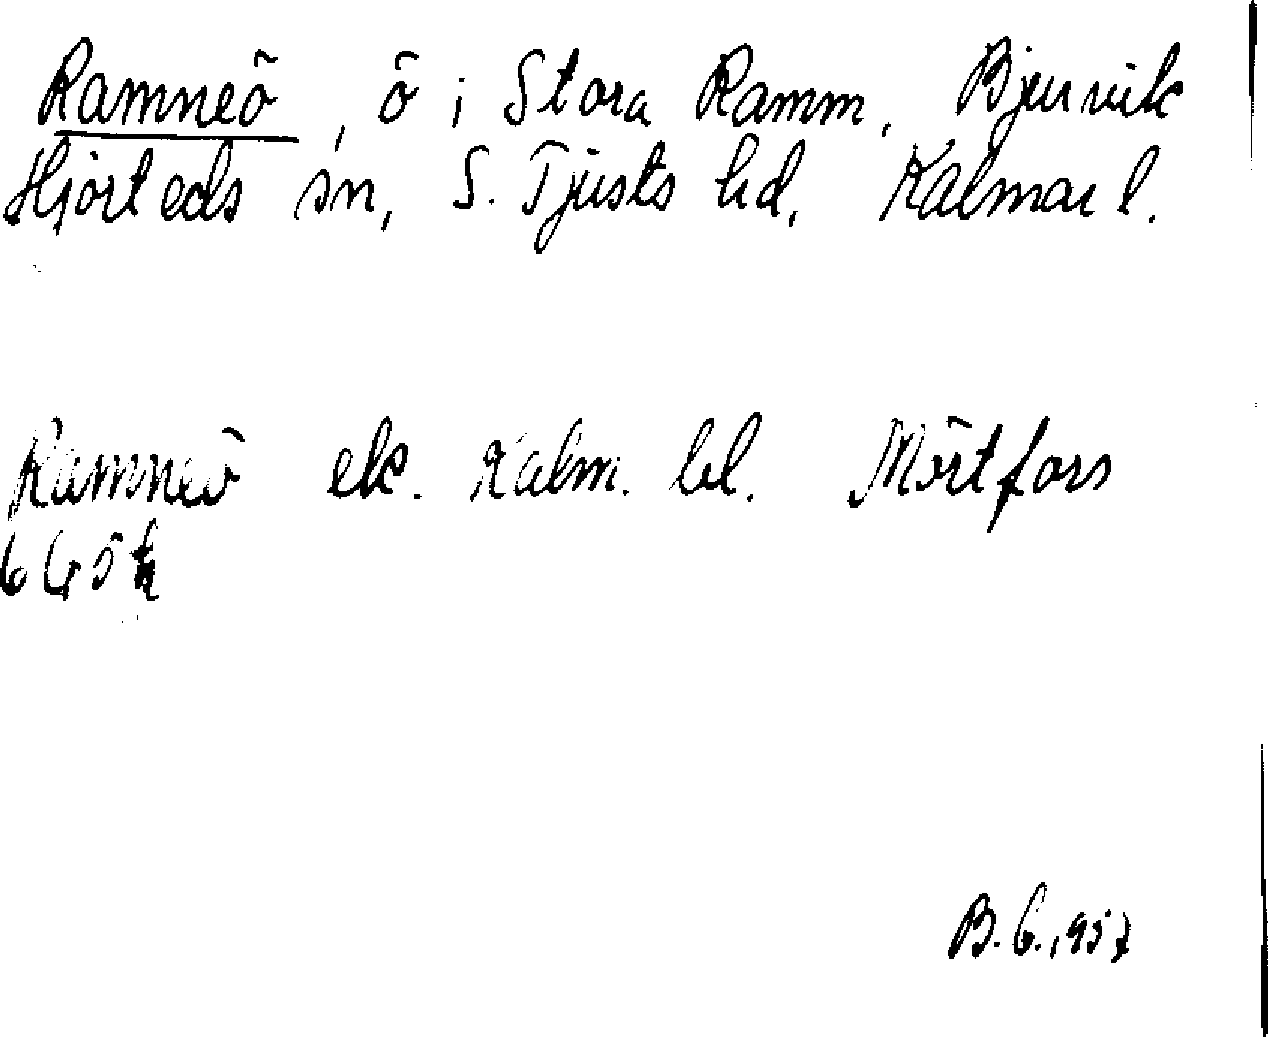 Ramneö, ö i Stora Ramm, Bjurvik
Hjorteds sn, S. Tjusts hd, Kalmar l.
Ramneö ek. Kalm. bl. Mörtfors
6 G ö h
B.G. 1957